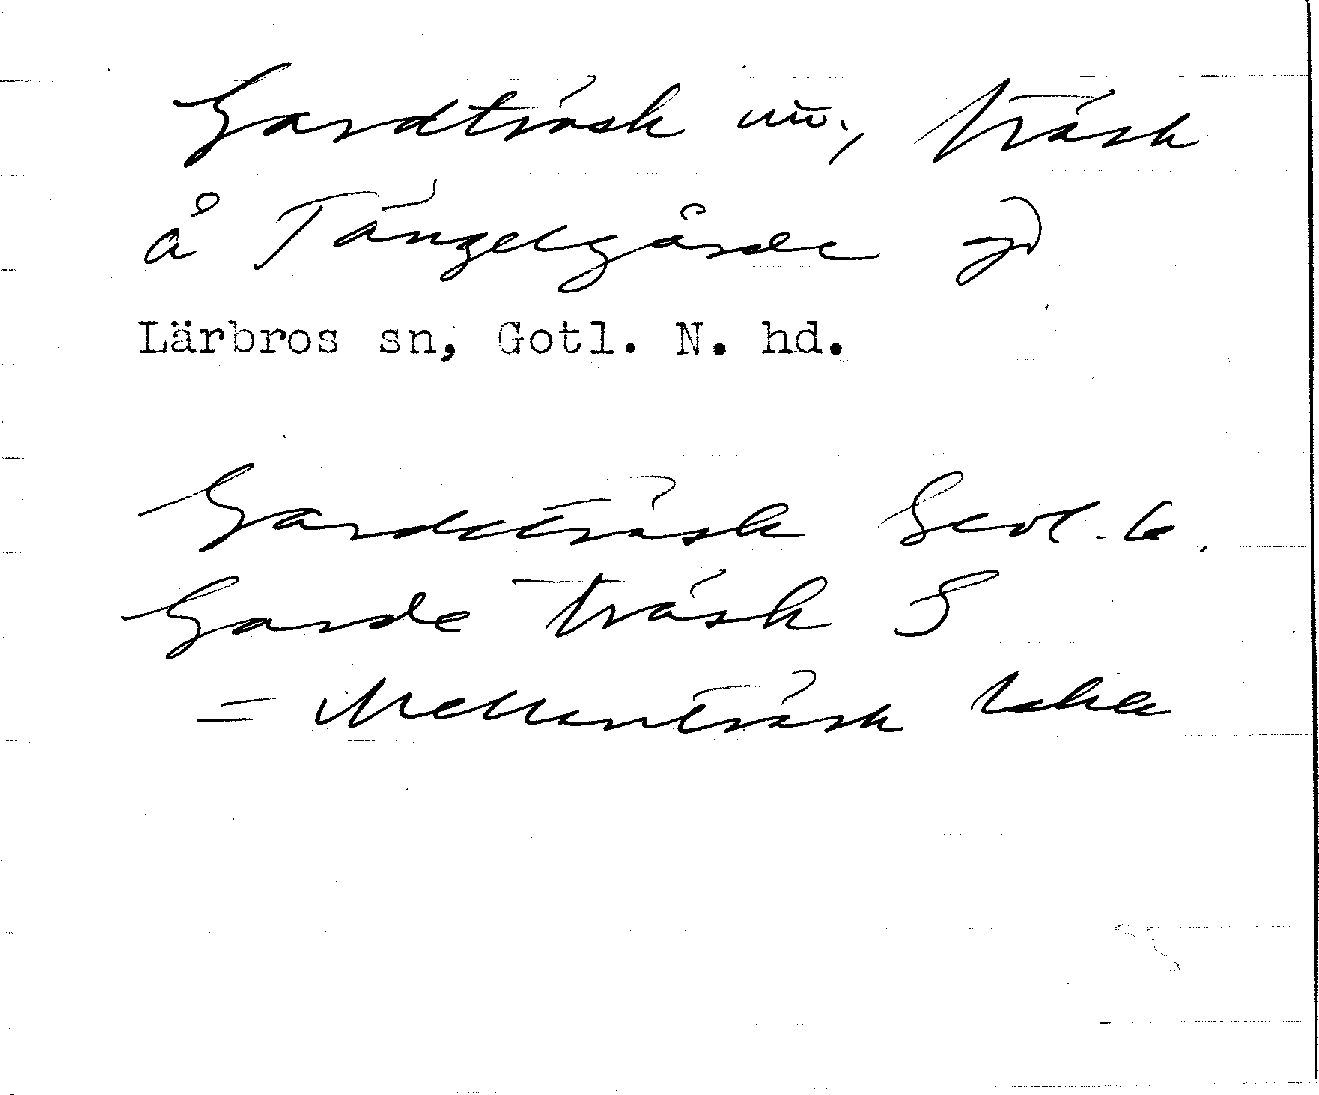 Gardträsk nu, träsk
å Tängelgårde
Lärbros sn, Gotl. N. hd.
Gardeträsk Geol. b.
Garde träsk S
= Mellanträsk